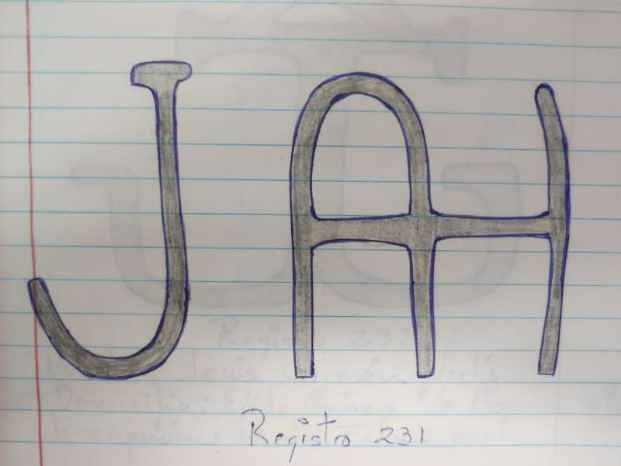 JAH
Registro 231